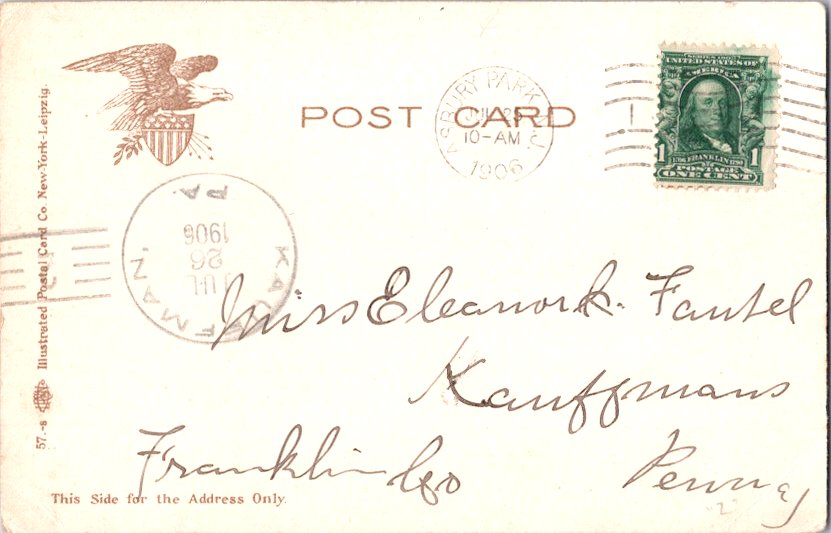 POST CARD
ASBURY PARK N.J.
JUL 25
10-AM
1906
SERIES 1902
UNITED STATES OF
AMERICA
1706 FRANKLIN 1790
1 POSTAGE 1
ONE CENT
KAUFFMAN.
PA.
JUL
26
1906
Miss Eleanor k. Fautel
Kauffmans
Franklin Co Penna
This Side for the Address Only.
57.-s Illustrated Postal Card Co. New-York-Leipzig.